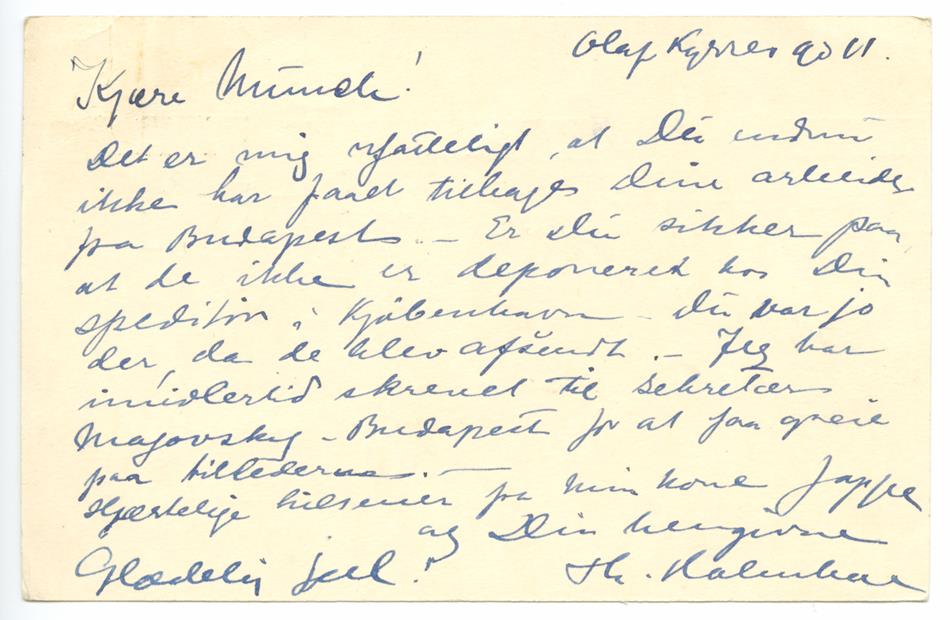 Olaf Kyrres gd 11.
Kjære Munch!
Det er mig ufatteligt, at Du endnu
ikke har faaet tilbage Dine arbeider
fra Budapest. – Er Du sikker paa,
at de ikke er deponeret hos Din
speditör i Kjöbenhavn – Du var jo
der, da de blev afsendt. – Jeg har
imidlertid skrevet til Sekretær
Majovsky – Budapest for at faa greie
paa billederne. –
Hjærtelige hilsener fra min kone Jappe
og Din hengivne
Glædelig jul! Th.